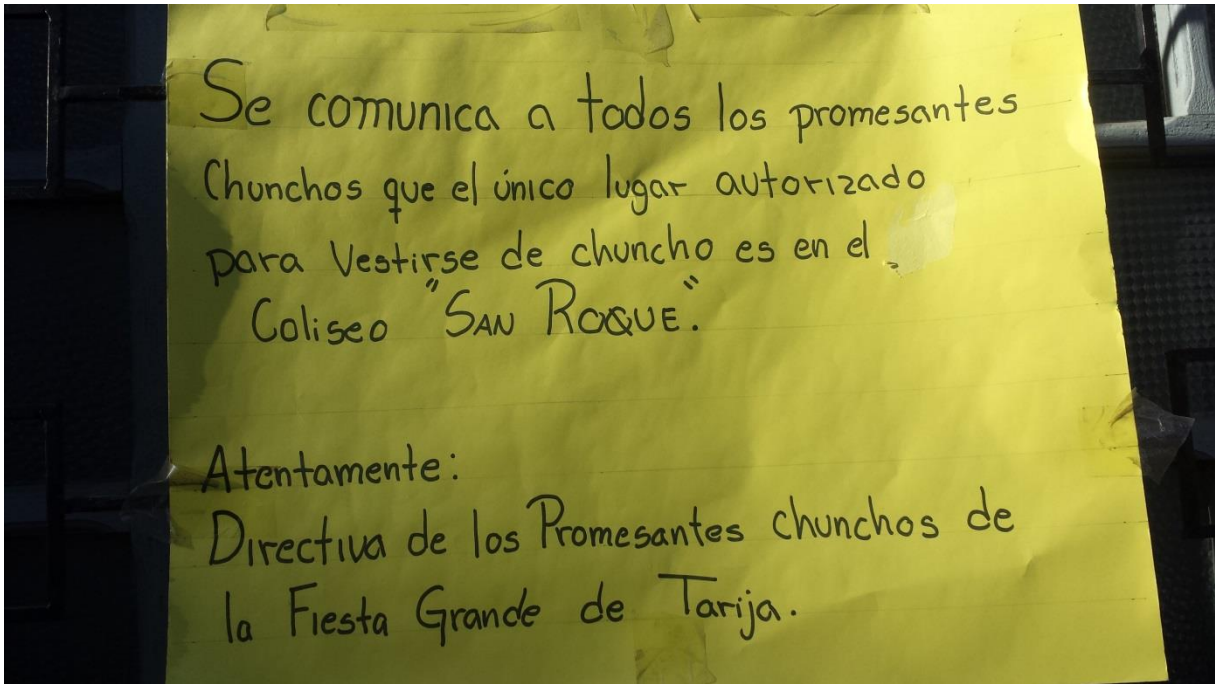 Se comunica a todos los promesantes
Chunchos que el único lugar autorizado
para Vestirse de chuncho es en el
Coliseo "SAN ROQUE."
Atentamente:
Directiva de los Promesantes chunchos de
la Fiesta Grande de Tarija.